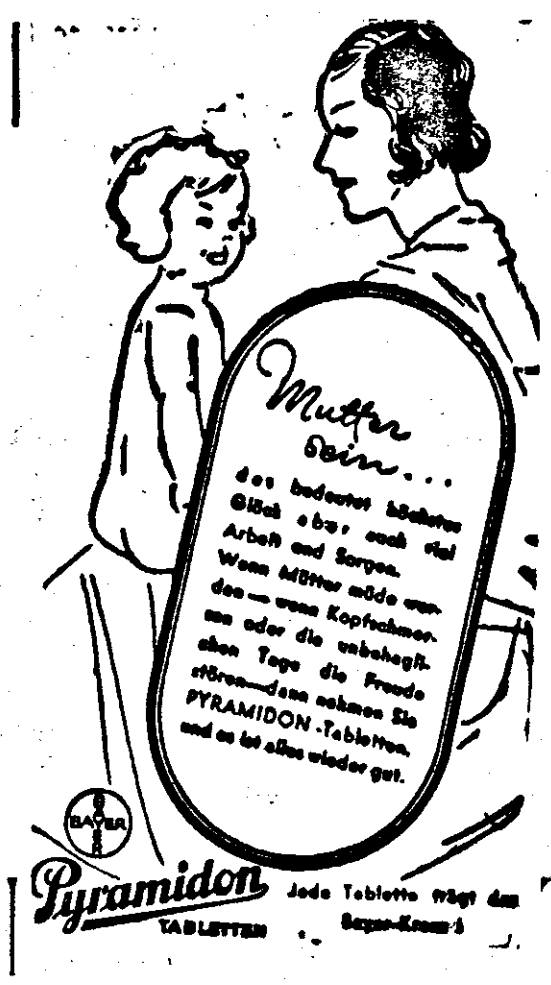 Mutter
sein...
das bedeutet höchstes
Glück aber auch viel
Arbeit und Sorgen.
Wenn Mütter müde wer-
den — wenn Kopfschmer-
zen oder die unbehagli-
chen Tage die Freude
stören—dann nehmen Sie
PYRAMIDON-Tabletten,
und es ist alles wieder gut.
BAYER
Pyramidon
TABLETTEN
Jede Tablette trägt das
Bayer-Kreuz!